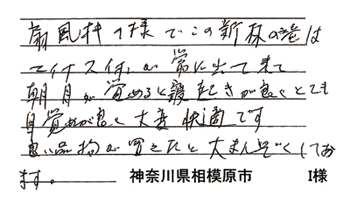 扇風機の様でこの新林の滝は
マイナスイオンが常に出て来て
朝目が覚めると寝起きが良くとても
目覚めが良く大変快適です
良い品物が買えたと大まんぞくしてお
ます。 神奈川県相模原市 I様